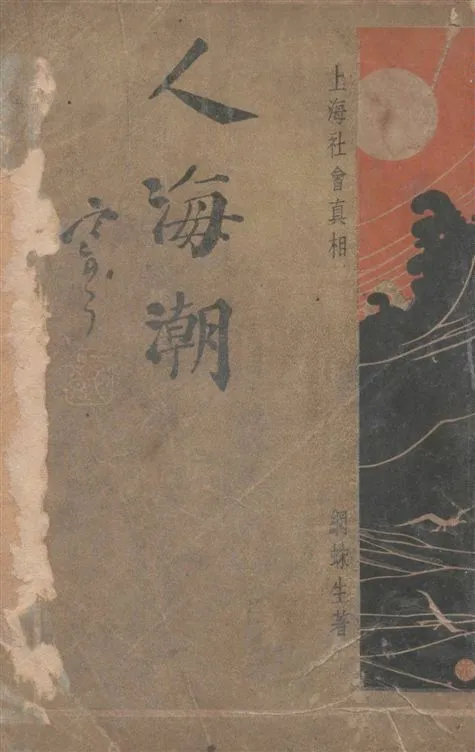 上海社會真相
網蛛生著
人海潮